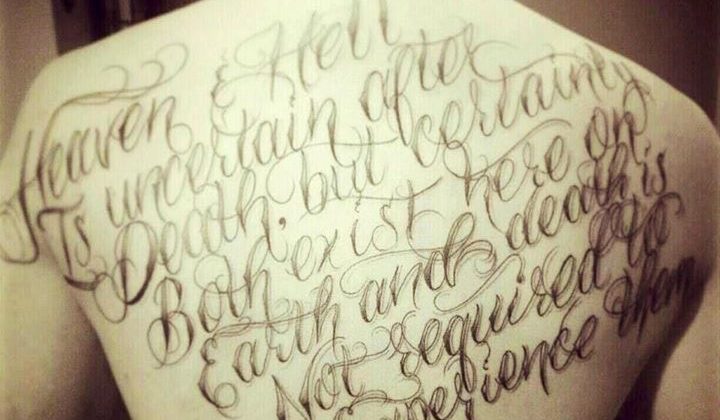 Heaven & Hell
Is uncertain after
Death, but certainly
Both exist here on
Earth and death is
Not required to
experience them